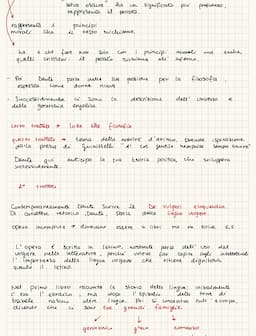 "selva oscura" ha un significato più profondo,
rappresenta il peccato
rappresenta i principi
morali che
ha a che fare non solo con i principi morali ma anche
quelli cristiani: il peccato
Poi Dante parla della sua passione per la filosofia,
come donna
Successivamente ci sono la descrizione dell'universo e
delle gerarchie angeliche.
terzo trattato → lode alla filosofia
quarto trattato → tema della nobiltà d'animo, prende ispirazione
dalla poesia di Guinizzelli "Al cor gentile rempaira sempre amore"
Dante qui anticipa la sua teoria politica che svilupperà
successivamente.
Contemporaneamente Dante scrive il De vulgari eloquentia.
Di carattere retorico, Dante parla della lingua volgare.
opera incompiuta → dovevano essere 4 libri ma ne scrive 2
L'opera è scritta in latino, nonostante parli dell'uso del
volgare nella letteratura, perché voleva far capire agli intellettuali
l'importanza della lingua volgare che ritiene dignitosa
quanto il latino.
Nel primo libro racconta la storia della lingua: inizialmente
c'era l'ebraico, ma dopo l'episodio della torre di
Babele altre lingue. Poi si concentra sull'Europa,
dicendo che ci sono tre grandi famiglie:
germanico greco romanzo